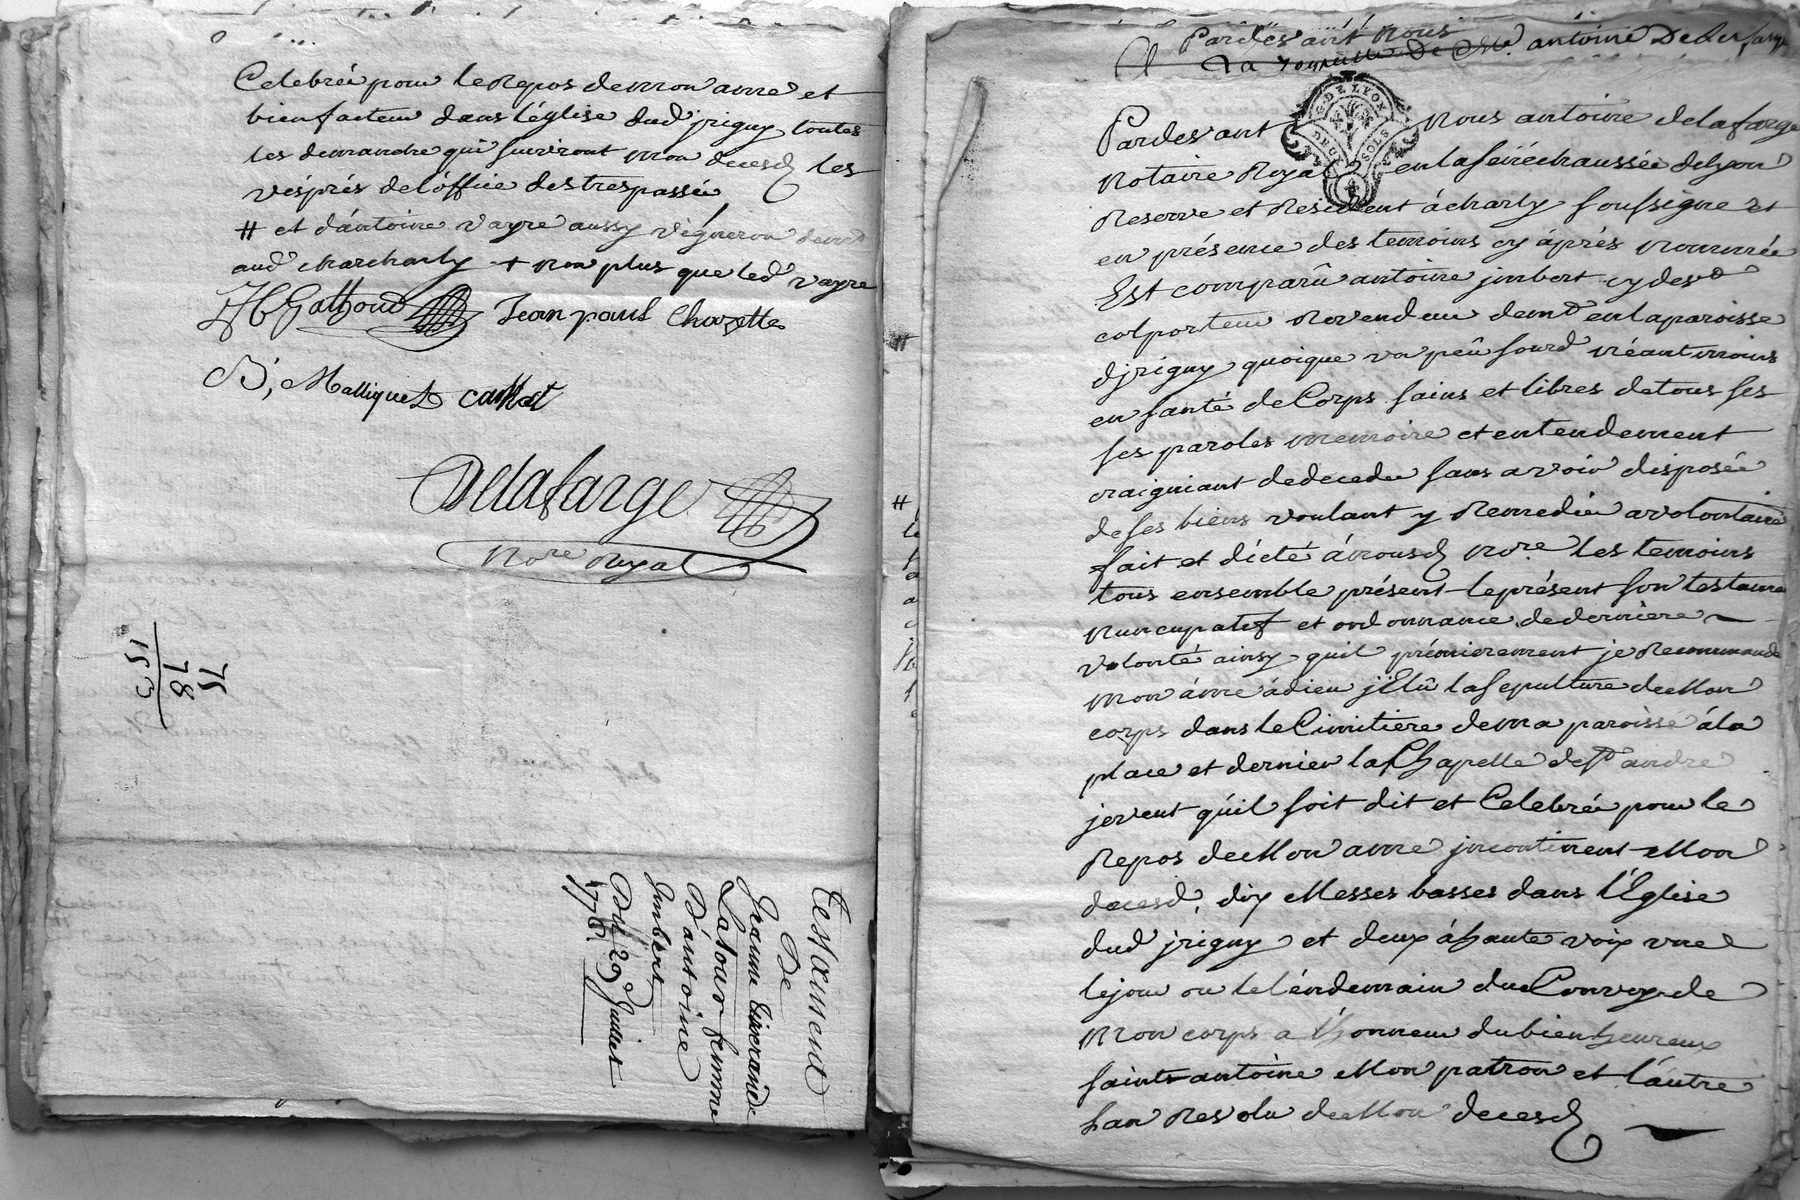 Celebrée pour le Repos de mon ame et
bienfacteur dans l'église dud' jrigny toutes
les dimanche qui suivront mon decesd les
vésprés de l'óffice des trespassée
# et d'ántoine vayre aussy vigneron demt
aud' charly + non plus que led' vayre
Gathoud Jean paul Chazette
B, Malliquet
Delafarge
Nore Royal
75
78
153
Testament
De
Jeanne tisserande
Latour femme
D'antoine
Jmbert
Du 29 Juillet
Pardes ant Nous
antoine Delafarge
G. DE LYON
DEUX SOLS
Pardevant Nous antoine delafarge
Notaire Royal en la sénéchaussée de lyon
Reserve et Resident á charly soussigne et
en présence des temoins cy áprés nommée
Est comparû antoine jmbert cydesd
colporteur Revendeur demt en la paroisse
d'jrigny quoique un peû sourd néantmoins
en santé de Corps sains et libres de tous ses
ses paroles memoire et entendement
craigniant de deceder sans avoir disposée
de ses biens voulant y Remedier a volontaire
fait et dicté á nousd nore les temoins
tous ensemble présent le présent son testame
nuncupatif et ordonnance de derniere
volonté ainsy quil prémierement je Recommande
mon áme ádieu j'Elû la sepulture de Mon
corps dans le Cimitiere de ma paroisse á la
place et dernier la Chapelle de st andre
je veut qúil soit dit et Celebrée pour le
Repos de Mon ame jncontinent Mon
decesd dix Messes basses dans l'Eglise
dud' jrigny et deux á haute voix une
le jour ou le léndemain du Convoy de
Mon corps a l'honneur du bienheureux
saint antoine Mon patron et l'áutre
lan Revolu de Mon decesd